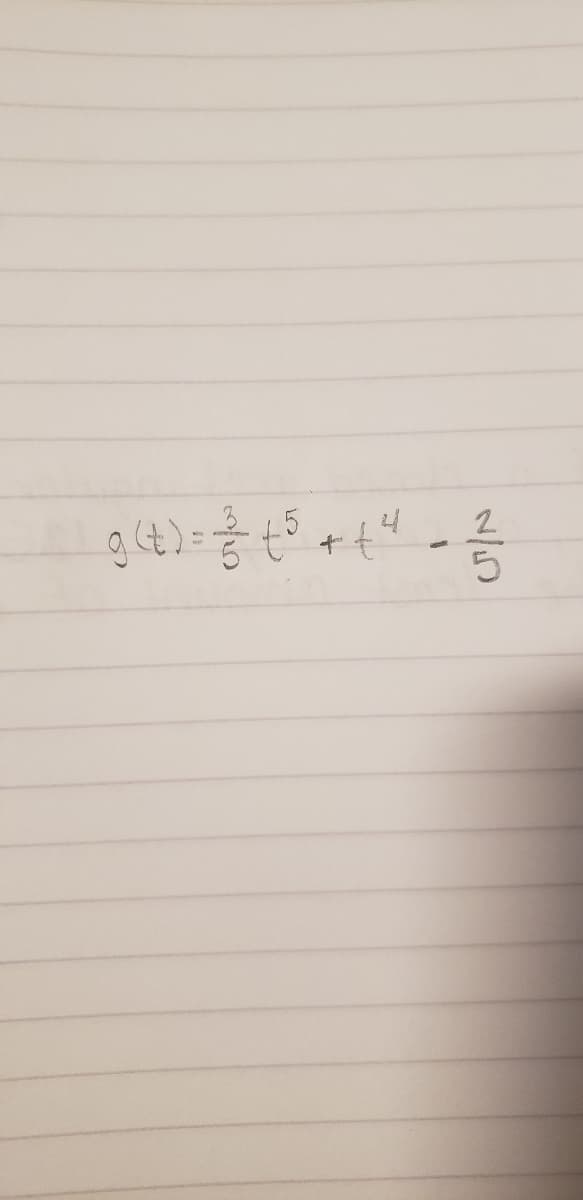 g(t) = 3/5 t⁵ + t⁴ - 2/5